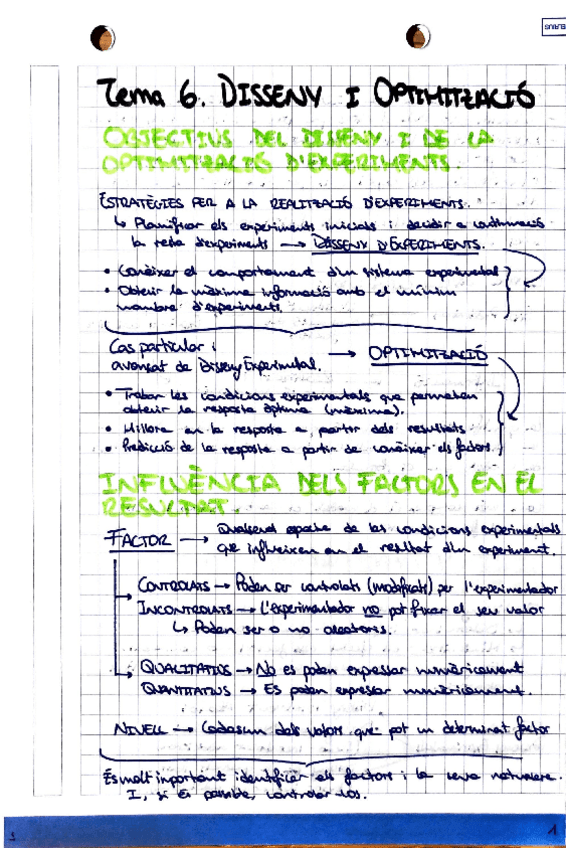 Tema 6. DISSENY I OPTIMITZACIÓ
OBJECTIUS DEL DISSENY I DE LA
OPTIMITZACIÓ D'EXPERIMENTS.
ESTRATÈGIES PER A LA REALITZACIÓ D'EXPERIMENTS.
↳ Planificar els experiments inicials i decidir a continuació
la resta d'experiments → DISSENY D'EXPERIMENTS.
• Conèixer el comportament d'un sistema experimental
• Obtenir la màxima informació amb el mínim
nombre d'experiments.
Cas particular i
avançat de Disseny Experimental. → OPTIMITZACIÓ
• Trobar les condicions experimentals que permeten
obtenir la resposta òptima (màxima).
• Millora en la resposta a partir dels resultats
• Predicció de la resposta a partir de conèixer els factors.
INFLUÈNCIA DELS FACTORS EN EL
RESULTAT.
FACTOR → Qualsevol aspecte de les condicions experimentals
que influeixen en el resultat d'un experiment.
CONTROLATS → Poden ser controlats (modificats) per l'experimentador
INCONTROLATS → L'experimentador no pot fixar el seu valor
↳ Poden ser o no aleatoris.
QUALITATIUS → No es poden expressar numèricament
QUANTITATIUS → Es poden expressar numèricament.
NIVELL → Cadascun dels valors que pot un determinat factor
És molt important identificar els factors i la seva naturalesa.
I, si és possible, controlar-los.
1